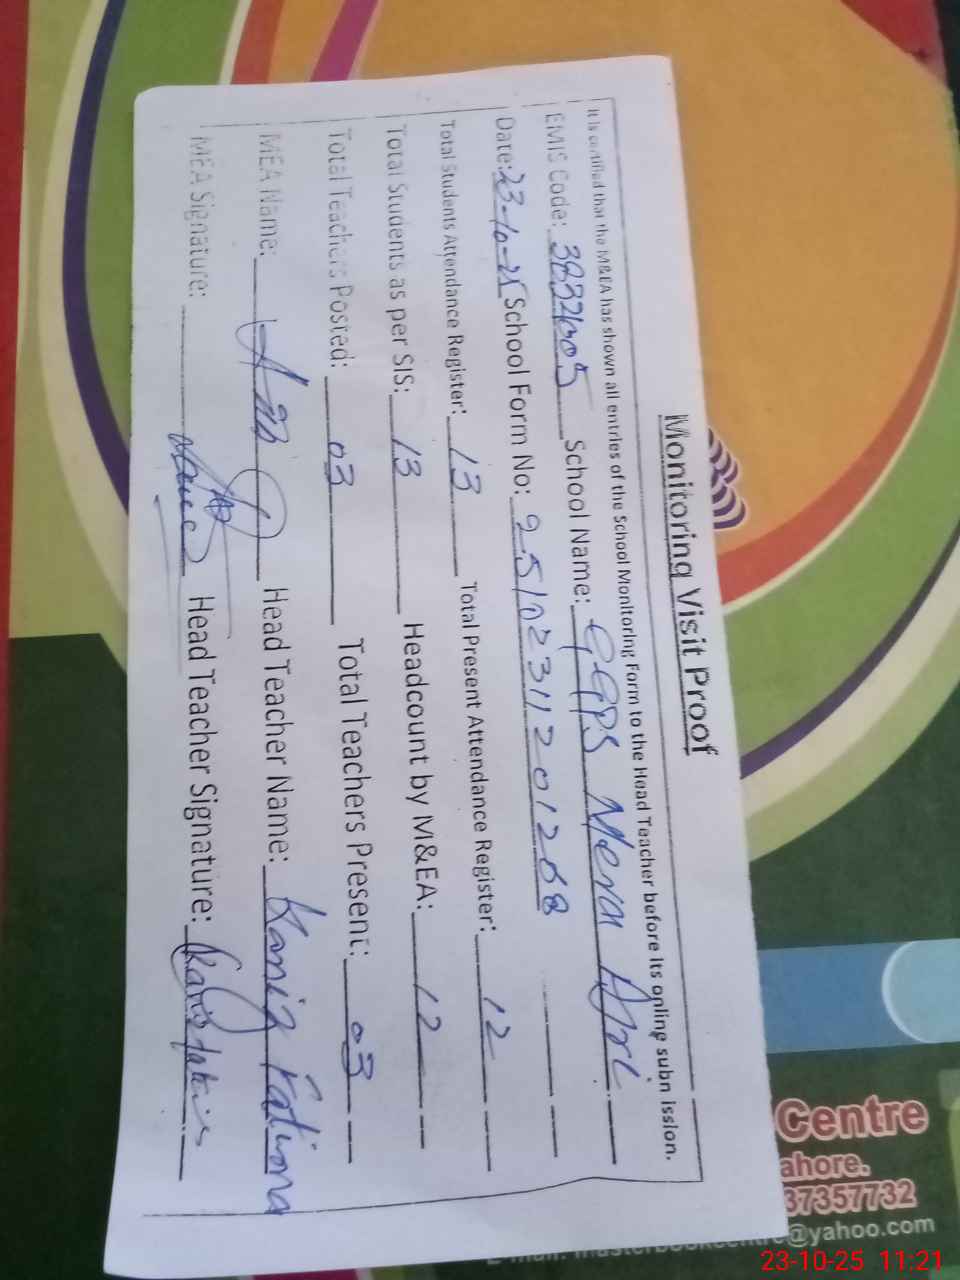 Monitoring Visit Proof
It is certified that the M&EA has shown all entries of the School Monitoring Form to the Head Teacher before its online subn ission.
EMIS Code: 38321005 School Name: GGPS Mera Arl
Date: 23-10-25 School Form No: 251023112012068
Total Students Attendance Register: 13 Total Present Attendance Register: 12
Total Students as per SIS: 13 Headcount by M&EA: 12
Total Teachers Posted: 03 Total Teachers Present: 03
MEA Name: Head Teacher Name: Kaniz Fatima
MEA Signature: Head Teacher Signature:
Centre
ahore.
37357732
@yahoo.com
23-10-25 11:21